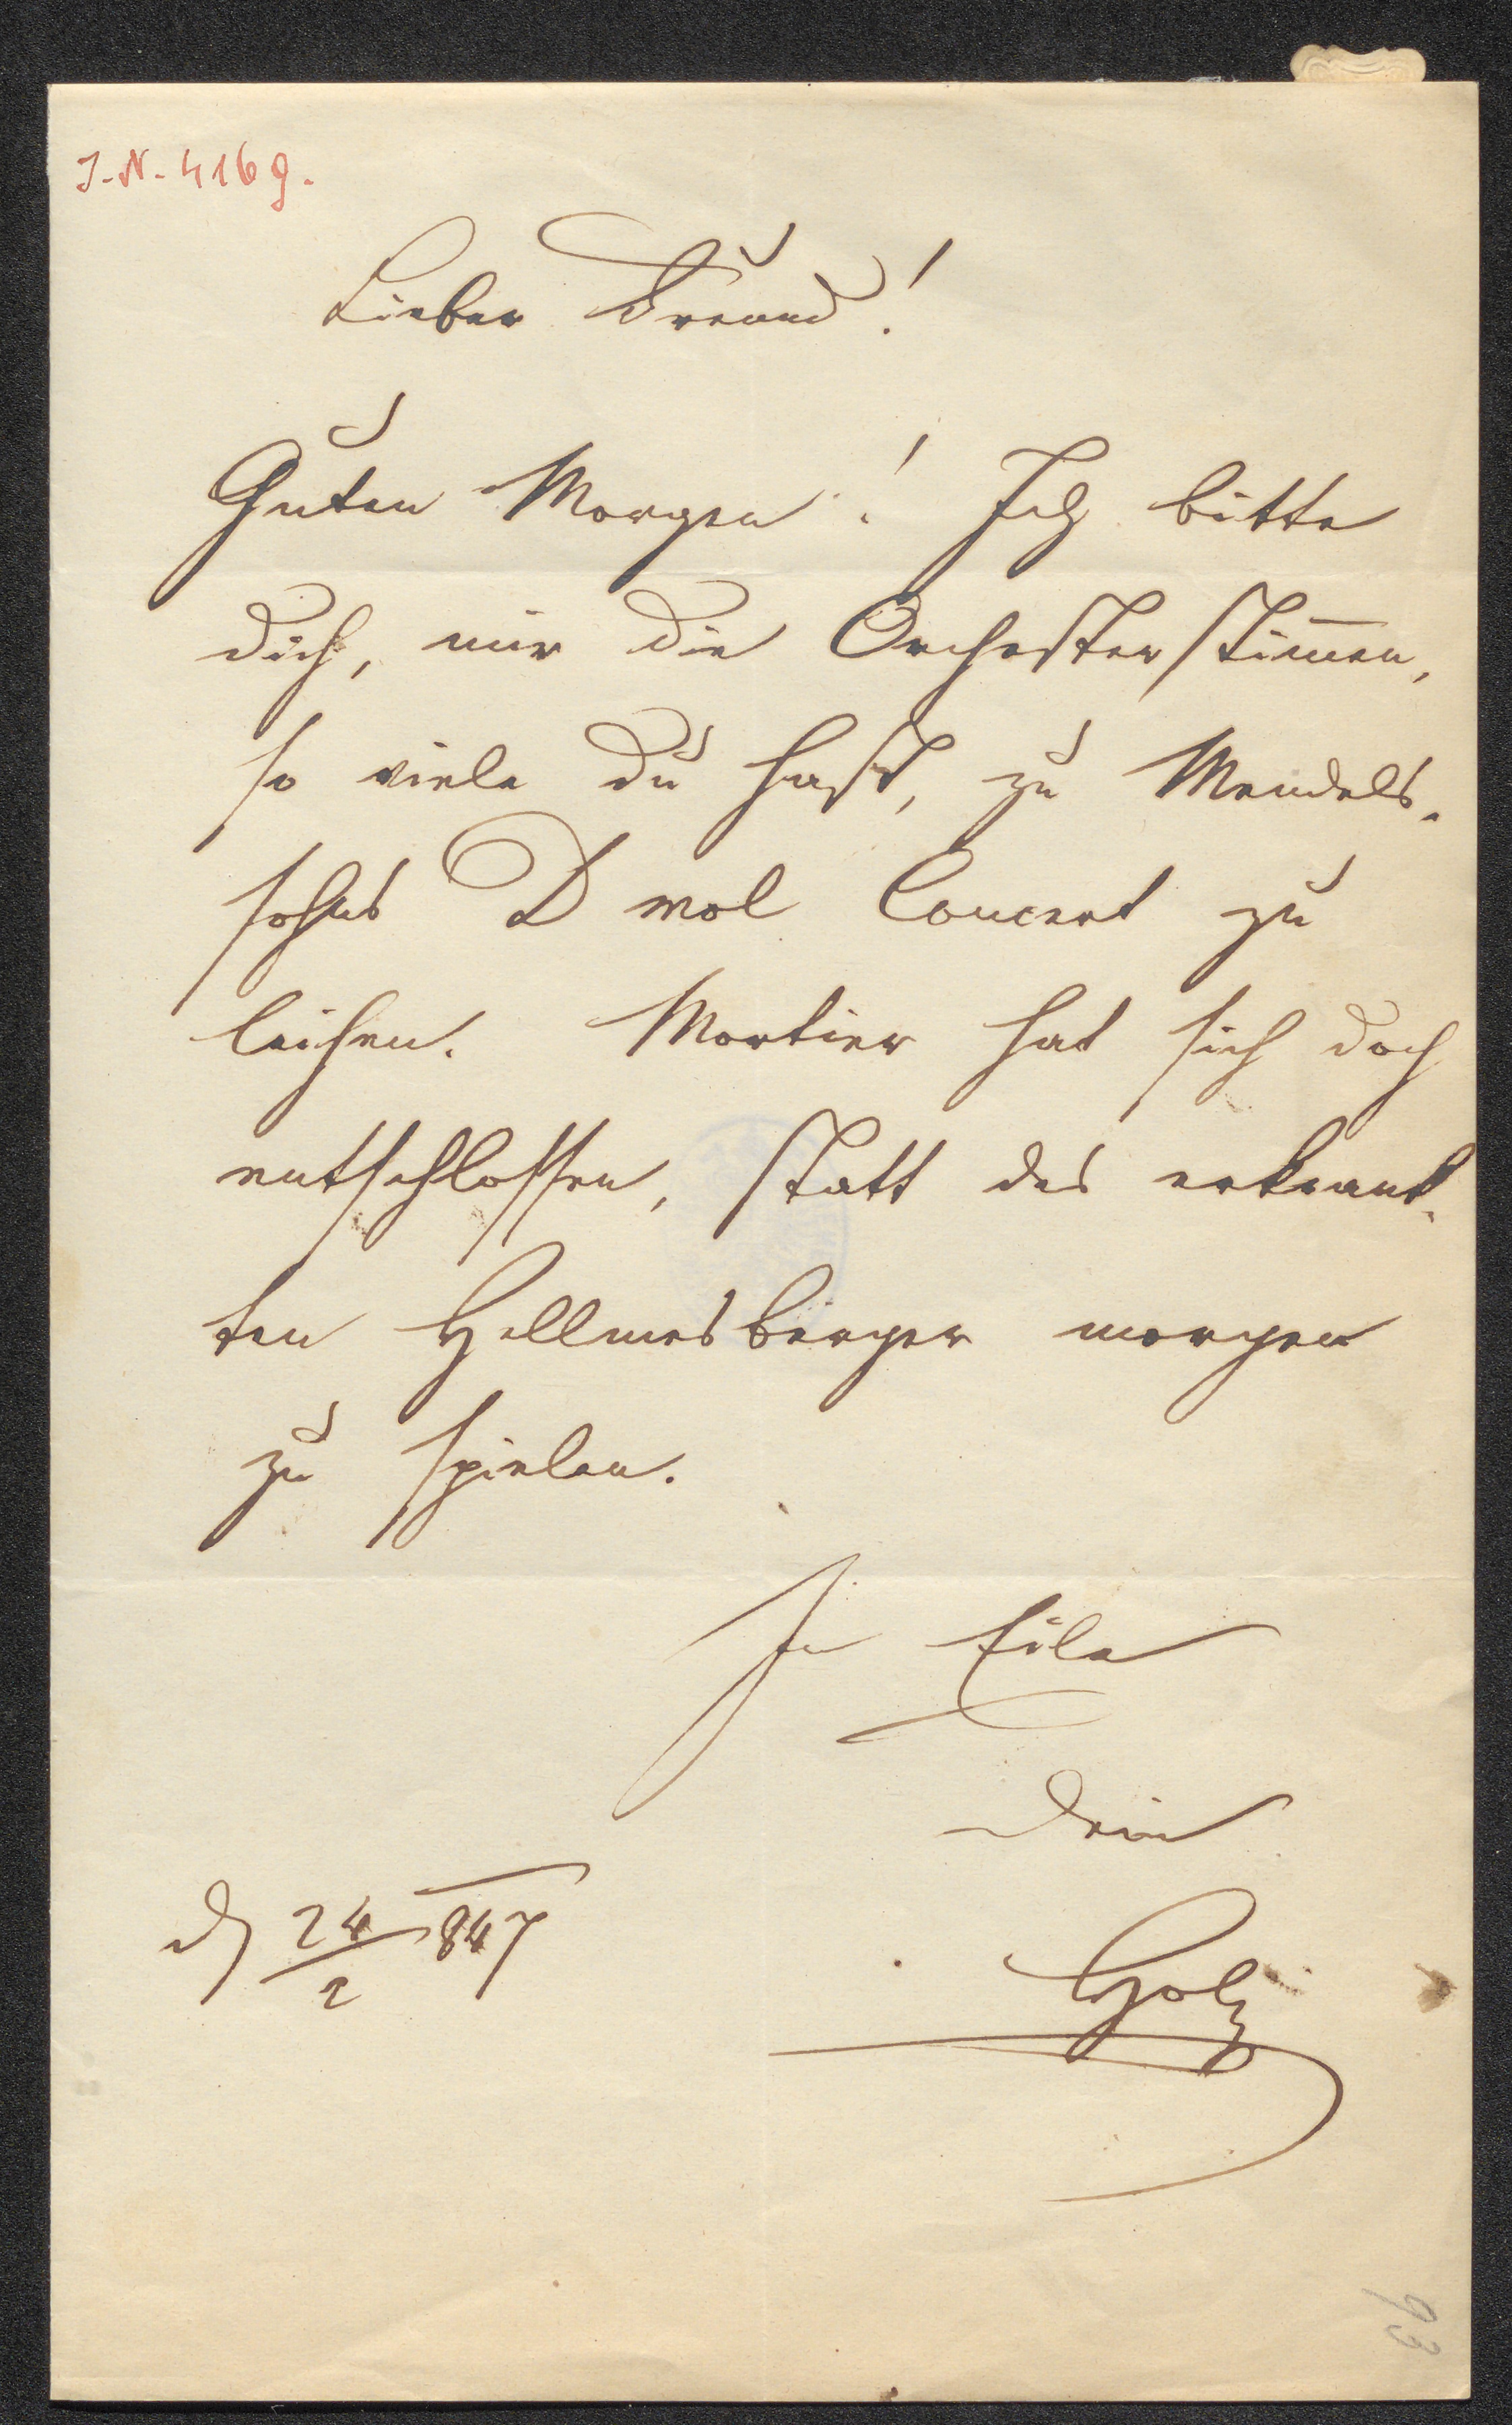 I.N. 4169.
Lieber Freund!
Guten Morgen! Ich bitte
dich, mir die Orchesterstim̅en,
so viele du hast, zu Mendels-
sohns D mol Concert zu
leihen. Mortier hat sich doch
entschlossen, statt des erkrank-
ten Hellmesberger morgen
zu spielen.
In Eile
Dein
Holz
d 24/2 847
93